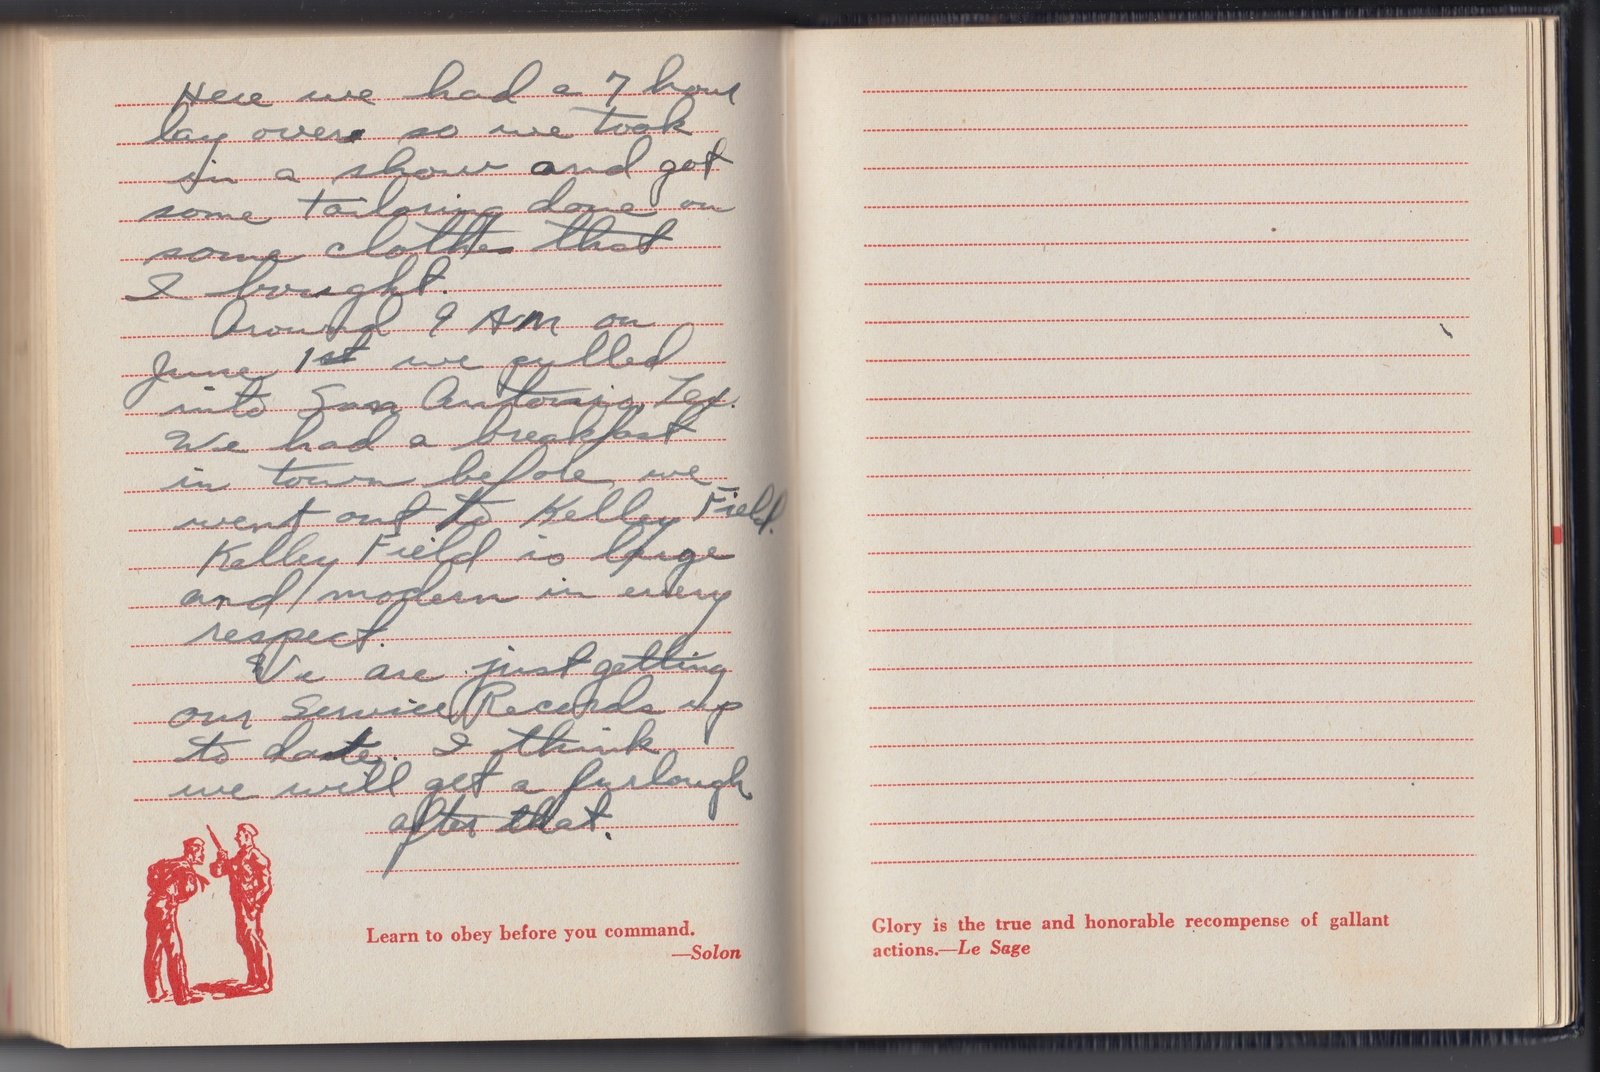 Here we had a 7 hour
lay over so we took
in a show and got
some tailoring done on
some clothes that
I bought.
Around 9 AM on
June 1st we pulled
into San Antonio, Tex.
We had a breakfast
in town before we
went out to Kelley Field.
Kelley Field is large
and modern in every
respect.
We are just getting
our Service Records up
to date. I think
we will get a furlough
after that.
Learn to obey before you command.
—Solon
Glory is the true and honorable recompense of gallant
actions.—Le Sage